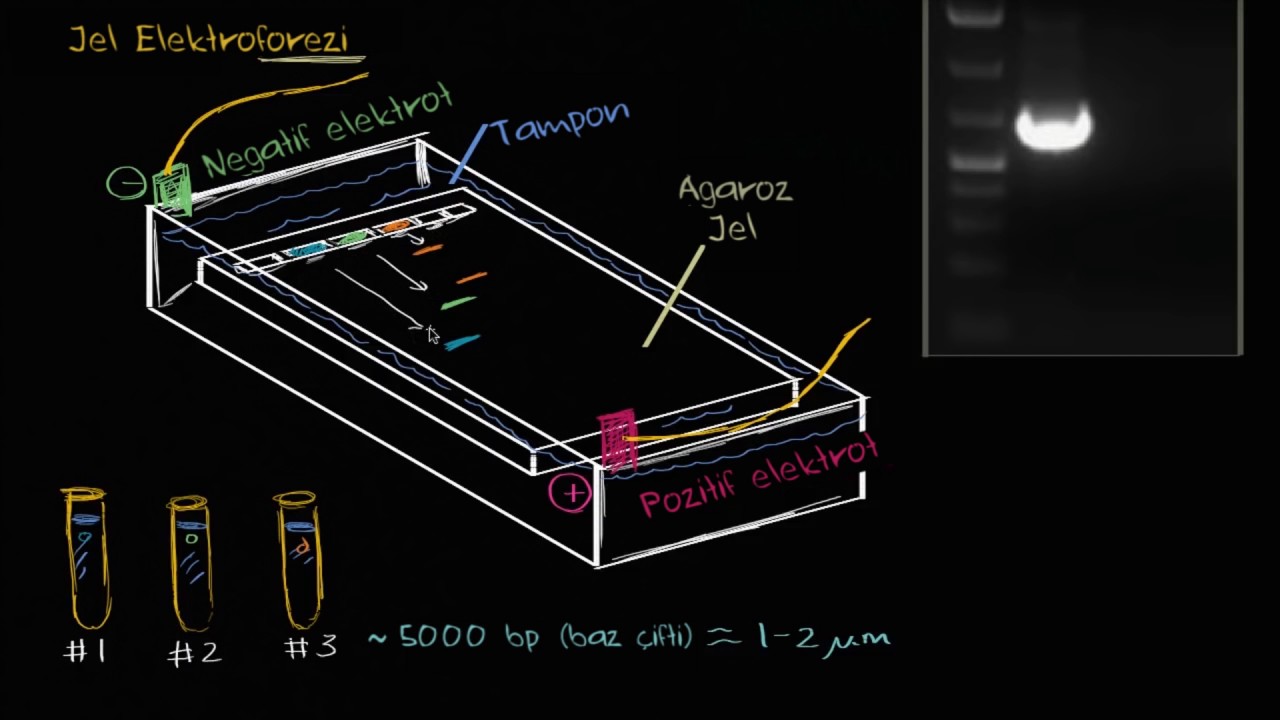 Jel Elektroforezi
Negatif elektrot
Tampon
−
Agaroz
Jel
Pozitif elektrot
+
#1 #2 #3
~ 5000 bp (baz çifti) ≈ 1-2 µm